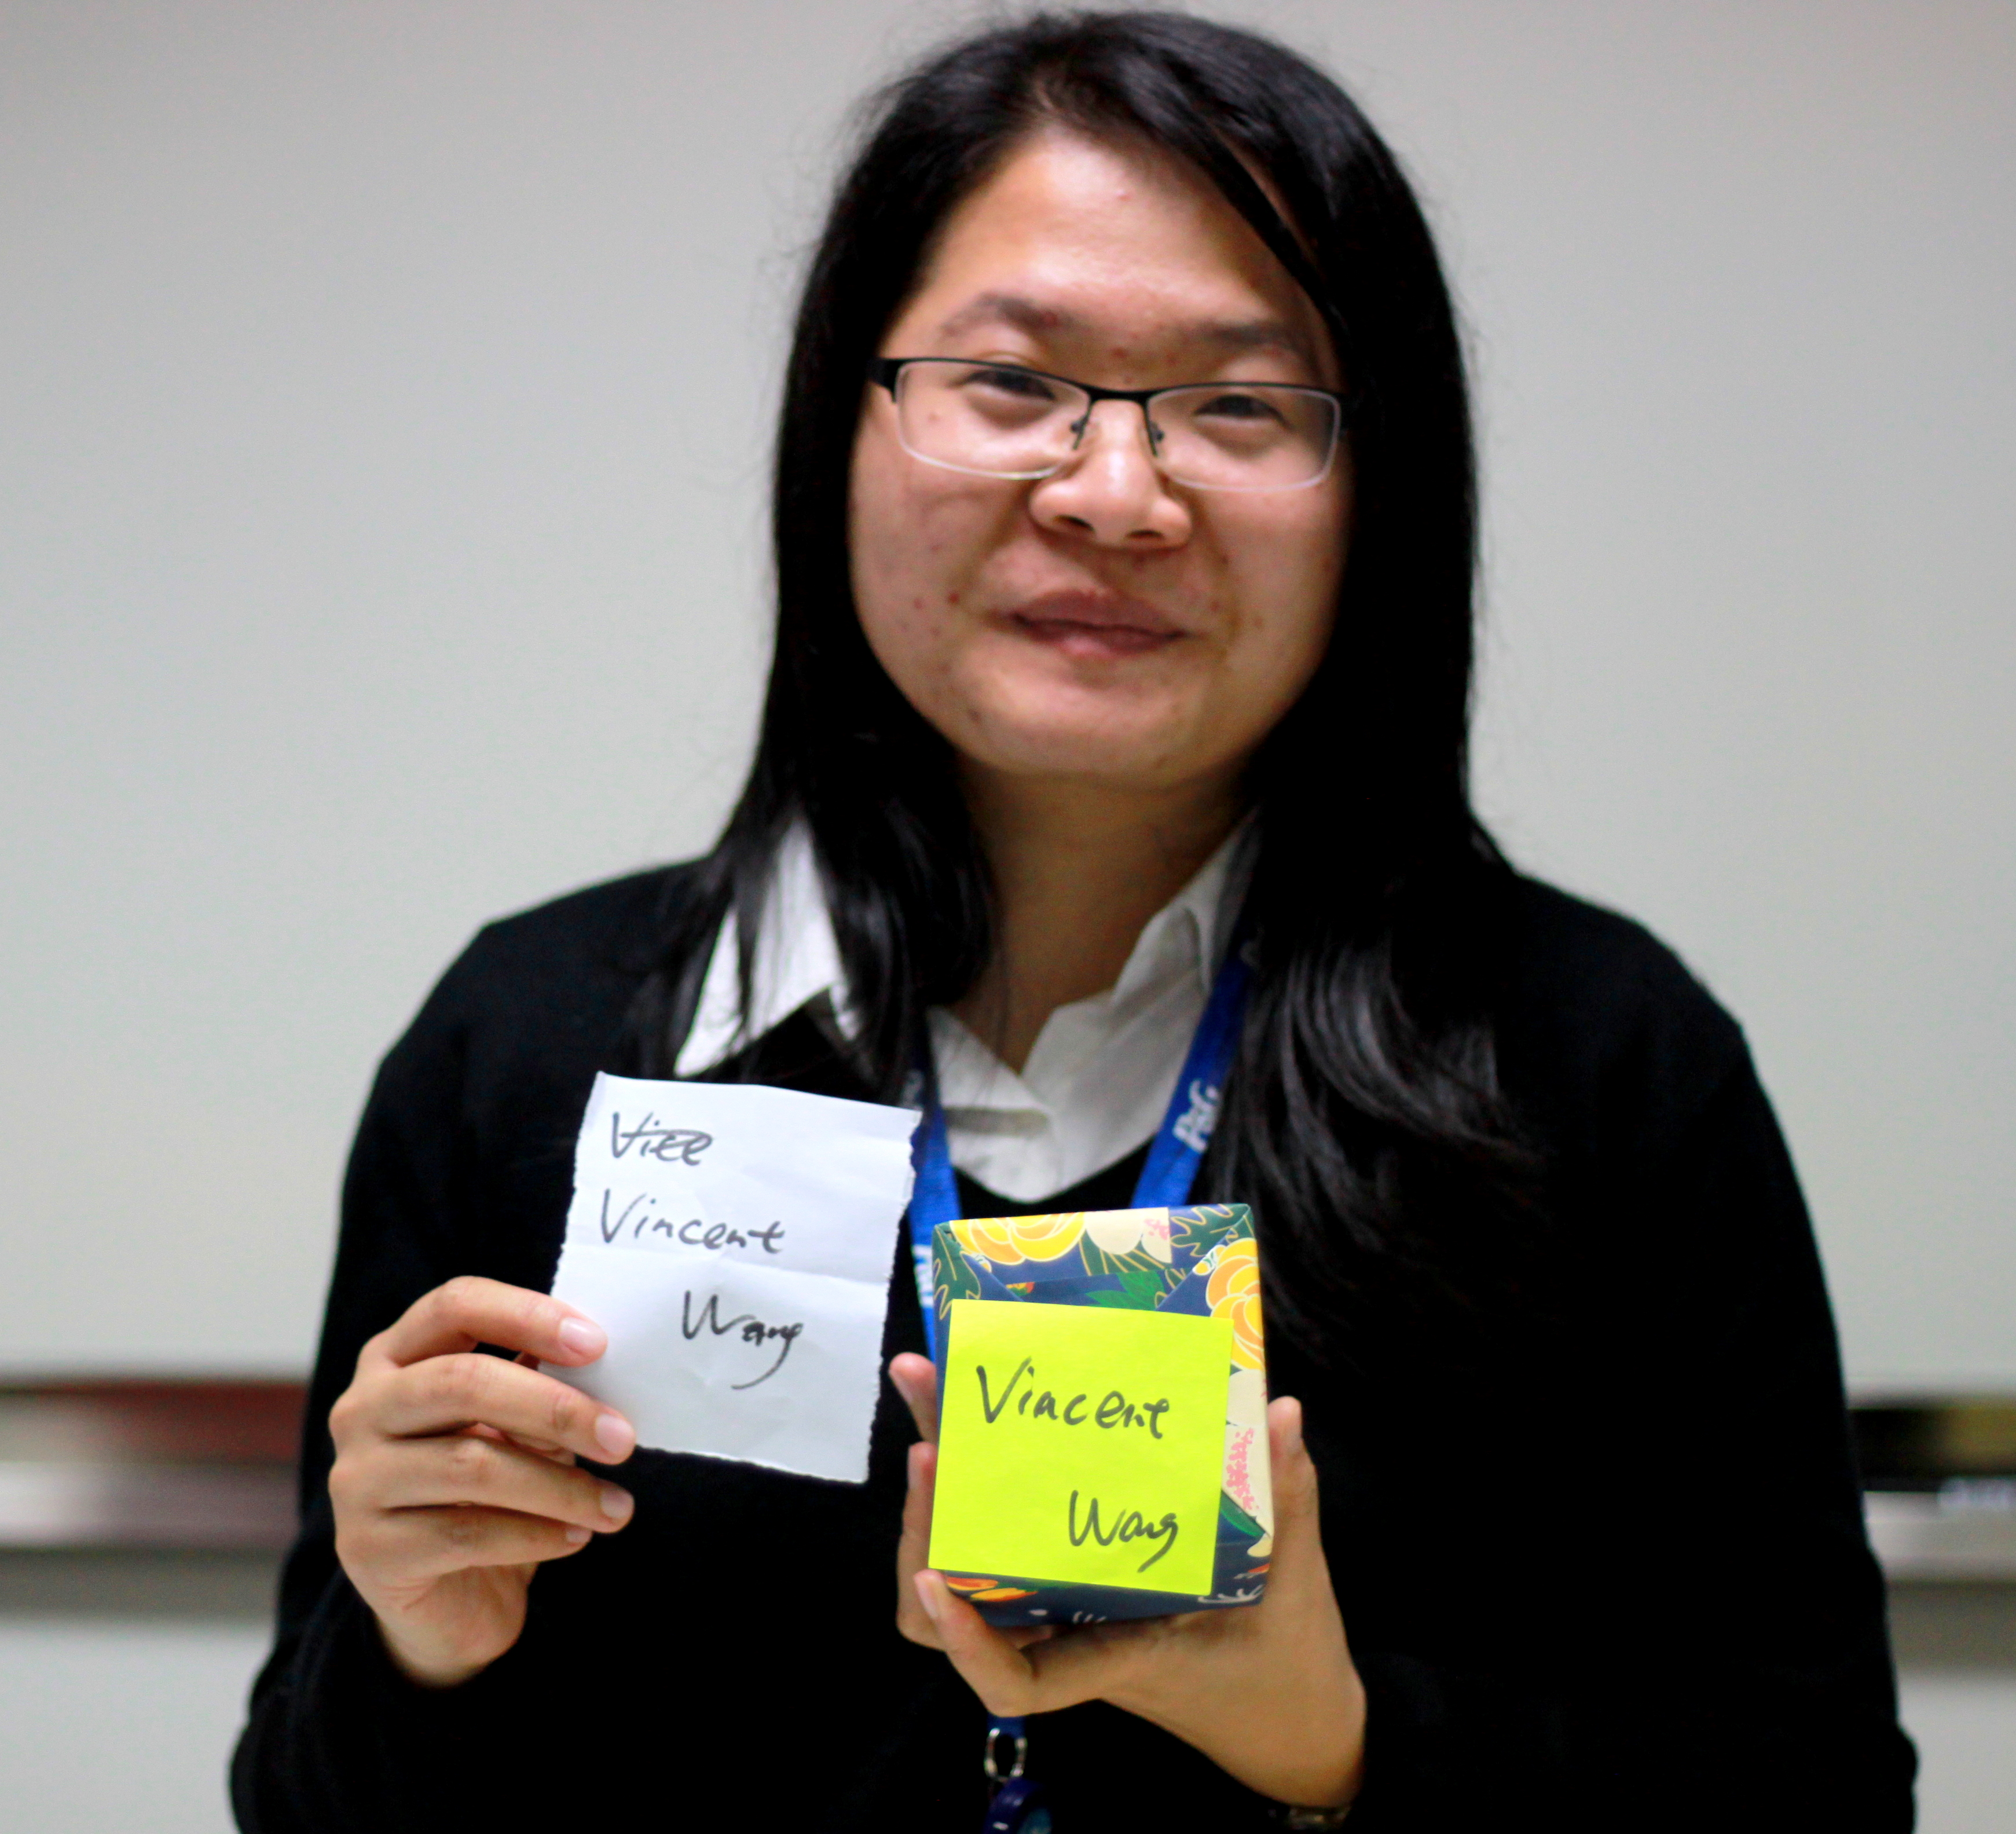 Vice
Vincent
Wang
Vincent
Wang
P&G